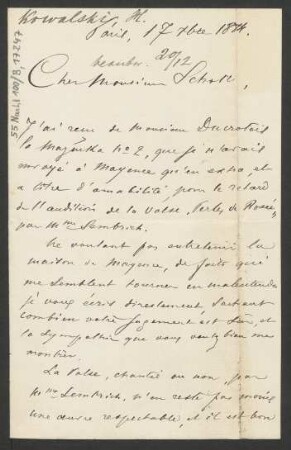 Kowalski, H.
Paris, 17 Xbre 1884.
beantw. 20/12
Cher Monsieur Schott,
J'ai reçu de Monsieur Ducrotois
la Mazurka No 2, que je n'avais
envoyé à Mayence qu'en extra, et
à titre d'amabilité, pour le retard
de l'audition de la Valse, Perles de Rosée,
par Mme Sembrich.
Ne voulant pas entretenir la
maison de Mayence, de faits qui
me semblent tourner en malentendu,
je vous écris directement, sachant
combien votre jugement est sûr, et
la sympathie que vous voulez bien me
montrer.
La Valse, chantée ou non, par
Mme Sembrich, n'en reste pas moins
une œuvre respectable, et il est bon
55 Nachl 100/B, 17247